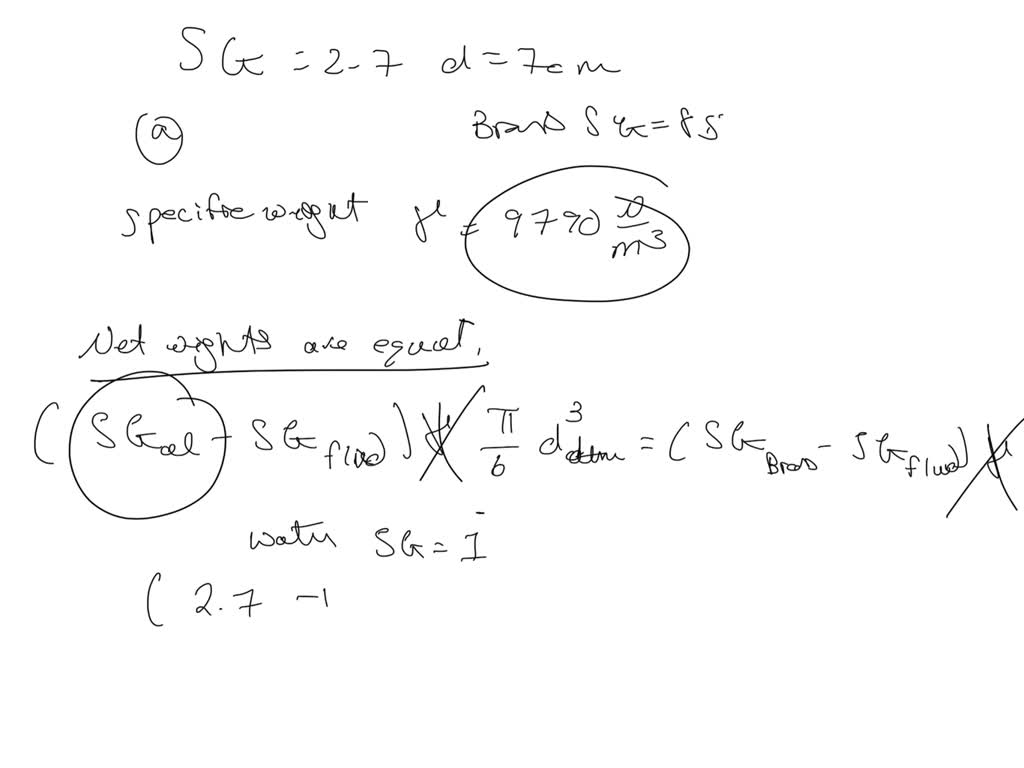 SG = 2.7 d = 7cm
(a)
Brass SG = 8.5
specific weight γ = 9790 N/m³
Net weights are equal.
(SG_al - SG_fluid) γ π/6 d³ = (SG_Brass - SG_fluid) γ
water SG = 1
(2.7 -1